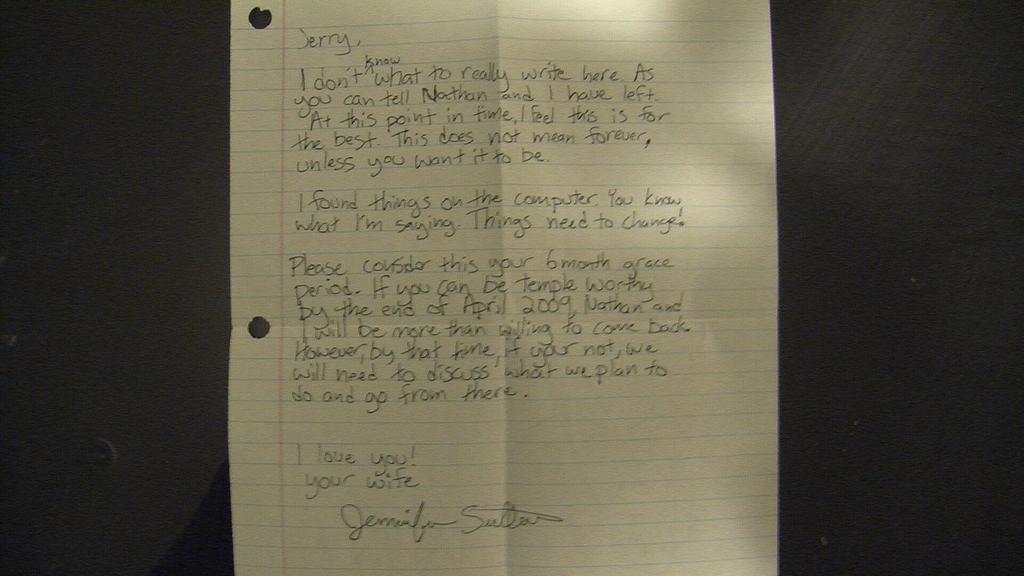 Jerry,
I don't know what to really write here. As
you can tell Nathan and I have left.
At this point in time, I feel this is for
the best. This does not mean forever,
unless you want it to be.
I found things on the computer. You know
what I'm saying. Things need to change!
Please consider this your 6 month grace
period. If you can be temple worthy
by the end of April 2009, Nathan and
I will be more than willing to come back.
However, by that time, if your not, we
will need to discuss what we plan to
do and go from there.
I love you!
your wife
Jennifer